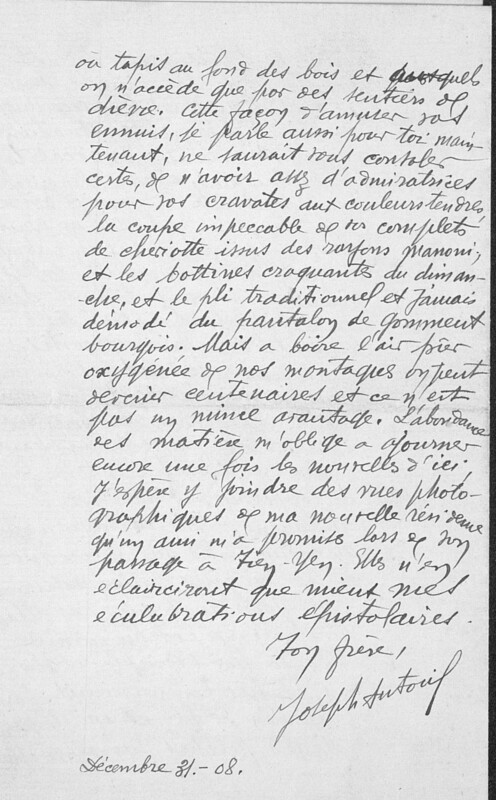 ou tapis au fond des bois et auxquels
on n'accède que par des sentiers de
chèvre. Cette façon d'amuser vos
ennuis, je parle aussi pour toi main-
tenant, ne saurait vous consoler
certes, de n'avoir assez d'admiratrices
pour vos cravates aux couleurs tendres,
la coupe impeccable de vos complets
de cheviotte issus des rayons manoni,
et les bottines craquantes du diman-
-che, et le pli traditionnel et jamais
démodé du pantalon de
bourgois. Mais a boire l'air
oxygénée de nos montagnes on peut
devenir centenaires et ce n'est
pas un mince avantage. L'abondance
des matière m'oblige a ajourner
encore une fois les nouvelles d'ici.
J'espère y joindre des vues photo-
graphiques de ma nouvelle résidence
qu'un ami m'a promises lors de son
passage à Yen-Yen. Elles n'en
eclairciront que mieux mes
éculubrations épistolaires.
Ton frère,
Joseph Antoui
Décembre 31.-08.